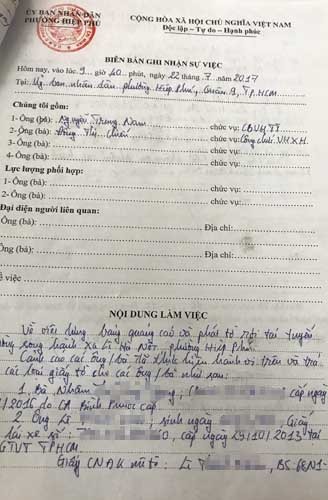 ỦY BAN NHÂN DÂN
PHƯỜNG HIỆP PHÚ
CỘNG HÒA XÃ HỘI CHỦ NGHĨA VIỆT NAM
Độc lập – Tự do – Hạnh phúc
BIÊN BẢN GHI NHẬN SỰ VIỆC
Hôm nay, vào lúc 9 giờ 40 phút, ngày 22 tháng 7 năm 2017
Tại: Ủy ban nhân dân phường Hiệp Phú, Quận 9, TP.HCM
Chúng tôi gồm:
1- Ông (bà): Nguyễn Trung Nam chức vụ: CBVHTT
2- Ông (bà): Thị chức vụ: Công chức VHXH
3- Ông (bà): chức vụ:
4- Ông (bà): chức vụ:
Lực lượng phối hợp:
1- Ông (bà): chức vụ:
2- Ông (bà): chức vụ:
Đại diện người liên quan:
Ông (bà): Địa chỉ:
Ông (bà): Địa chỉ:
về việc
NỘI DUNG LÀM VIỆC
Về việc dùng bảng quảng cáo và phát tờ rơi tại tuyến
đường song hành Xa Lộ Hà Nội phường Hiệp Phú.
Cảnh cáo các ông/bà đã thực hiện hành vi trên và trả
các loại giấy tờ cho các ông/bà như sau:
1. Bà Nhâm cấp ngày
/2016 do CA Bình Phước cấp.
2. Ông Lê sinh ngày Giấy
lái xe số: 0, cấp ngày 29/10/2013 tại
GTVT TPHCM.
Giấy CNĐK mô tô: Lê BS: 6EN1-